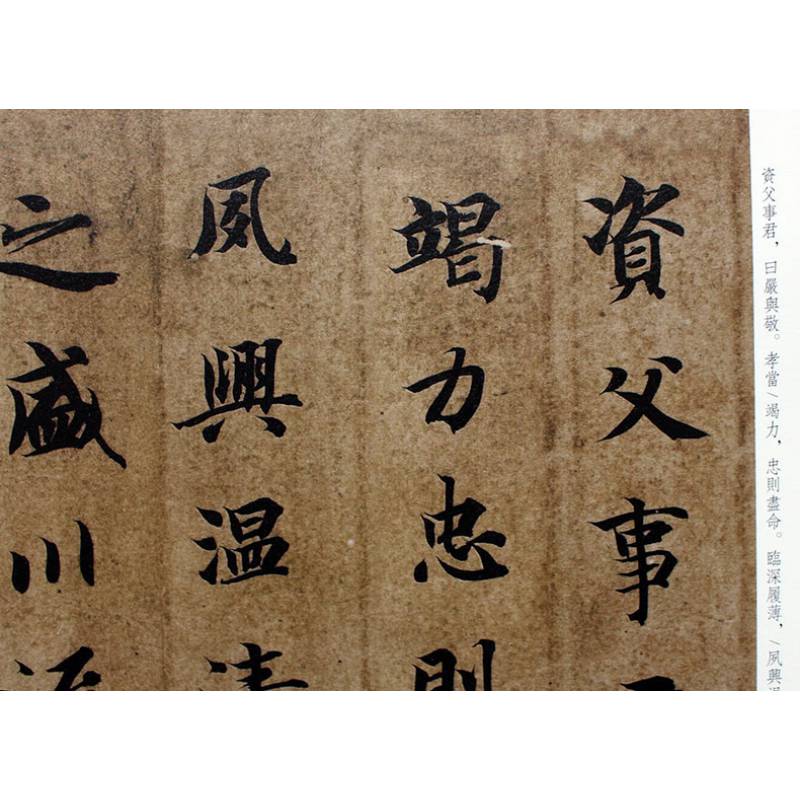 資父事
竭力忠則
夙興温清
之盛川流
資父事君，曰嚴與敬。孝當/竭力，忠則盡命。臨深履薄，/夙興温